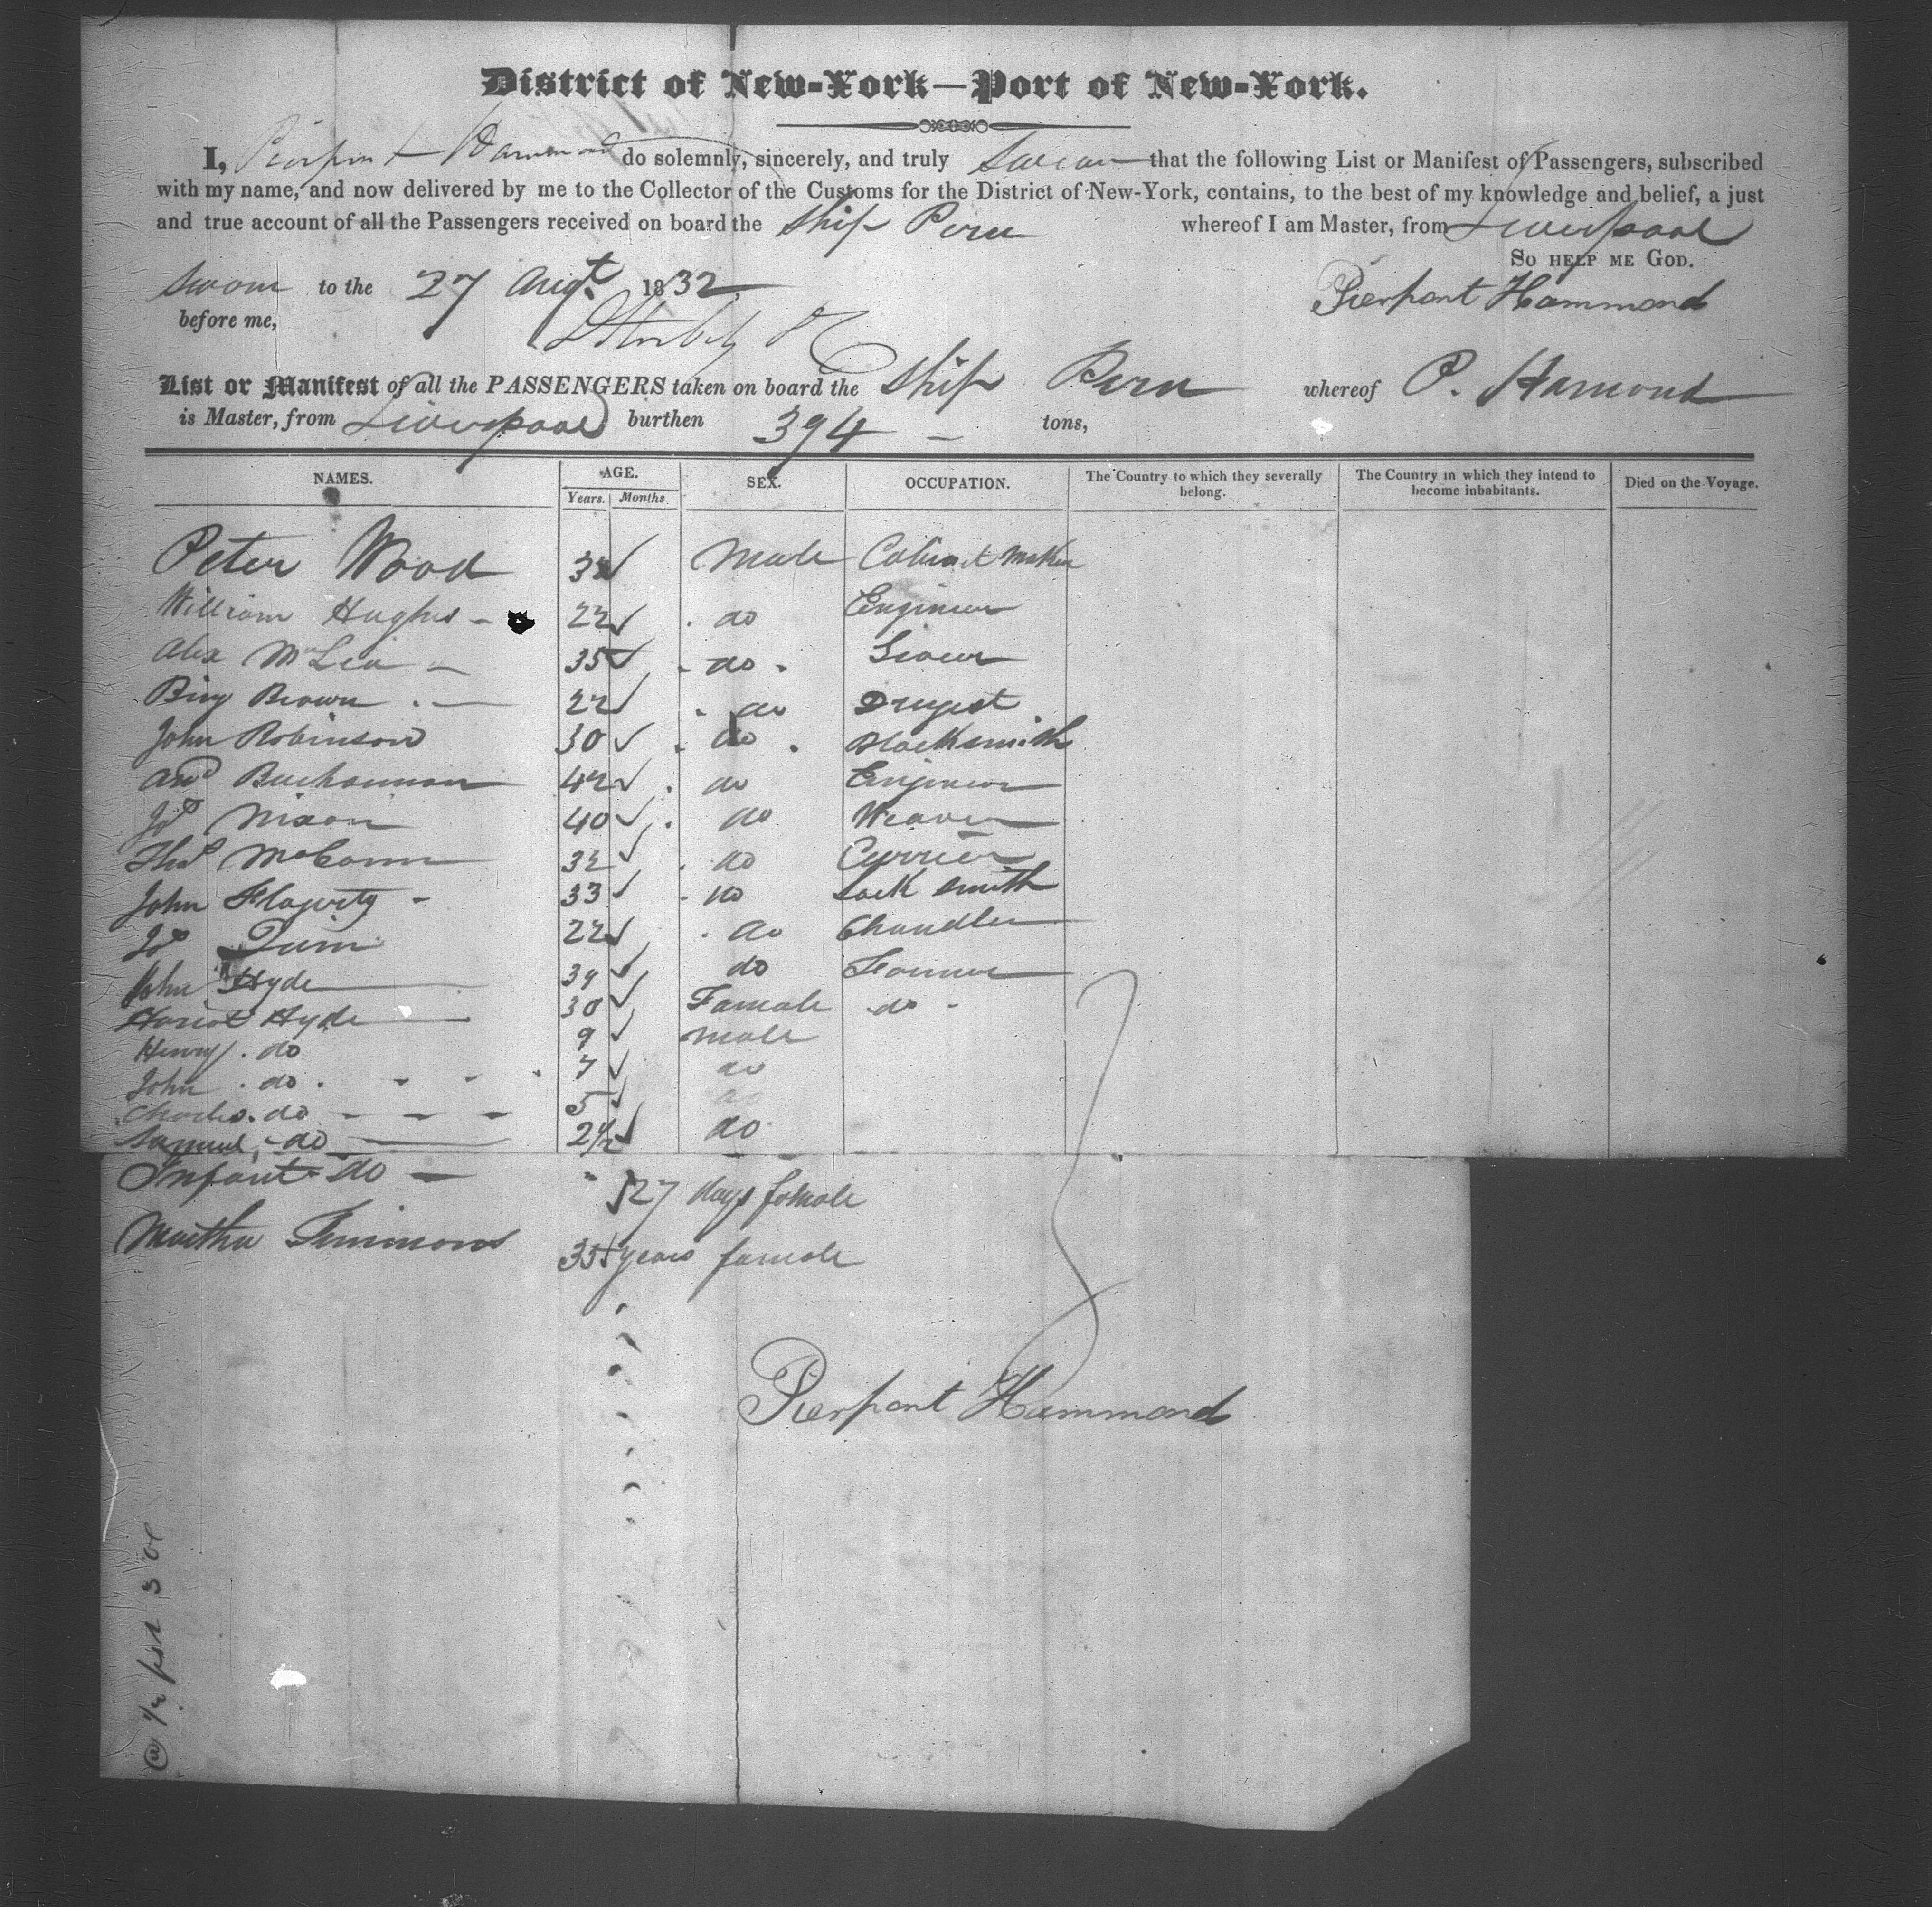 District of New-York—Port of New-York.
I, Pierpont Hammond do solemnly, sincerely, and truly Swear that the following List or Manifest of Passengers, subscribed
with my name, and now delivered by me to the Collector of the Customs for the District of New-York, contains, to the best of my knowledge and belief, a just
and true account of all the Passengers received on board the Ship Peru whereof I am Master, from Liverpool
So help me God.
Sworn to the 27 Augt 1832 Pierpont Hammond
before me,
List or Manifest of all the PASSENGERS taken on board the Ship Peru whereof P. Hamond
is Master, from Liverpool burthen 394 tons,
NAMES. AGE. Years. Months. SEX. OCCUPATION. The Country to which they severally belong. The Country in which they intend to become inhabitants. Died on the Voyage.
Peter Wood Male Cabinet Maker
William Hughes 22 do Engineer
Alex McLea 35 do
Binj Brown 22 do Drugest
John Robinson 30 do Blacksmith
And Buchannan 42 do Engineer
Jos Nixon 40 do Weaver
Thos McCann 32 do Currier
John Flagerty 33 do Lock Smith
22 do Chandler
John Hyde 39 do Farmer
Hariot Hyde 30 Famale do
Henry do 9 Male
John do 7 do
Charles do 5 do
Samuel do 2 1/2 do
Infant do " 27 days female
Martha Simmons 35 years famale
Pierpont Hammond